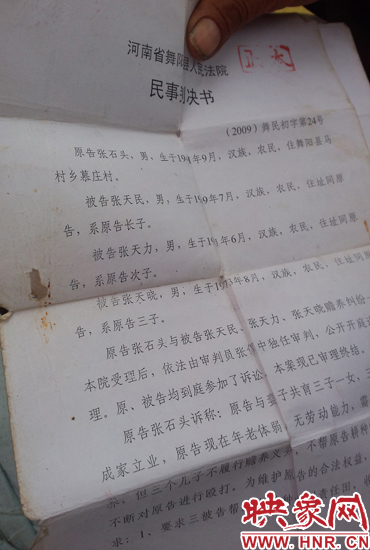 河南省舞阳县人民法院
民事判决书
（2009）舞民初字第24号
原告张石头，男，生于194 年9月，汉族，农民，住舞阳县马
村乡慕庄村。
被告张天民，男，生于19 9年7月，汉族，农民，住址同原
告，系原告长子。
被告张天力，男，生于19 年6月，汉族，农民，住址同原
告，系原告次子。
被告张天晓，男，生于1973年8月，汉族，农民，住址同
告，系原告三子。
原告张石头与被告张天民、张天力、张天晓赡养纠纷
本院受理后，依法由审判员张 中独任审判，公开开庭
理。原、被告均到庭参加了诉讼。本案现已审理终结。
原告张石头诉称：原告与妻子共育三子一女，
成家立业，原告现在年老体弱，无劳动能力，需
养，但三个儿子不履行赡养义务，不帮原告耕种
不断对原告进行殴打。为维护原告的合法权益，
求：1、要求三被告帮 种 责任田，
映象网
WWW.HNR.CN